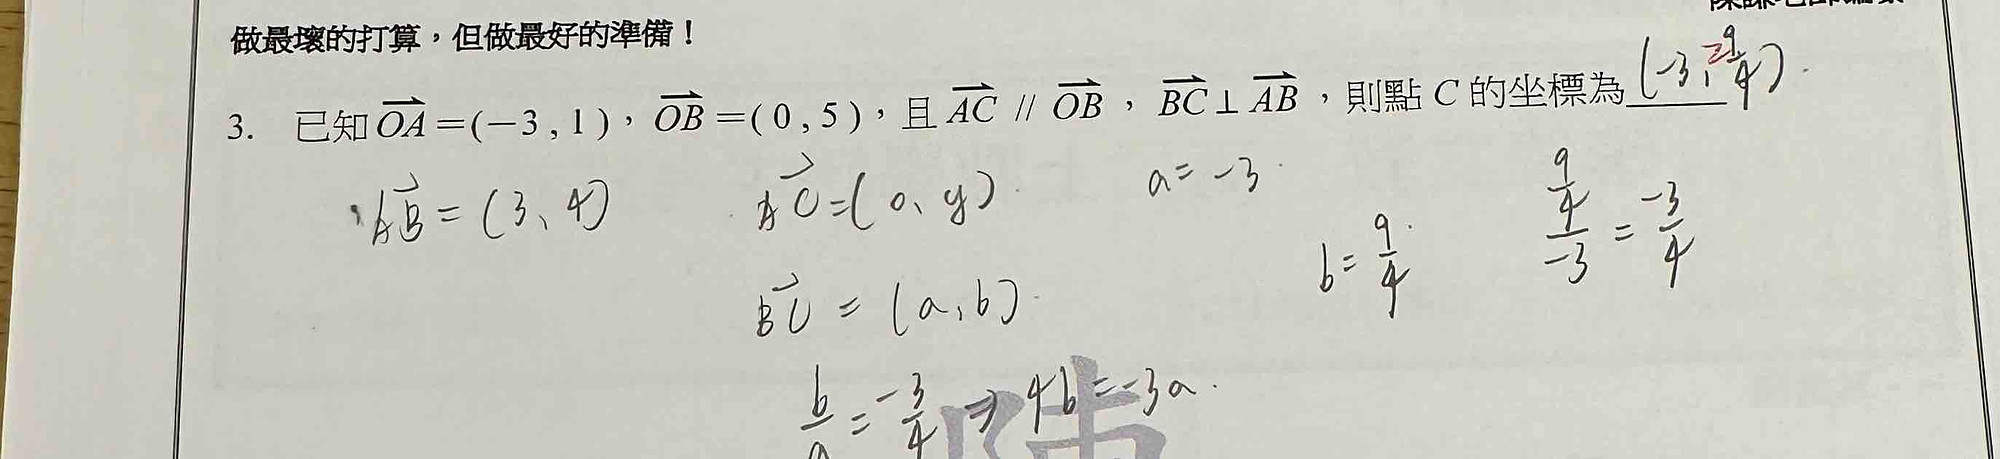 做最壞的打算，但做最好的準備！
3. 已知 OA =(−3 , 1 )，OB =( 0 , 5 )，且 AC // OB ，BC ⊥ AB ，則點 C 的坐標為 (-3, 9/4)
AB = (3、4)
AC = (0、y)
a = -3
BC = (a, b)
b = 9/4
9/4 / -3 = -3/4
b/a = -3/4 ⇒ 4b = -3a